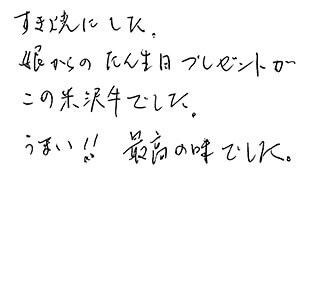 すき焼にした。
娘からのたん生日プレゼントが
この米沢牛でした。
うまい!! 最高の味でした。